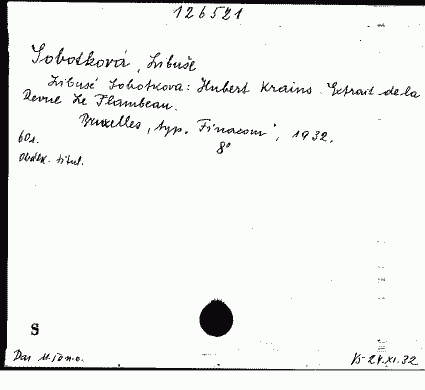 126521
Sobotková, Libuše
Libuse Sobotkova: Hubert Krains. Extrait de la
Revue Le Flambeau.
Bruxelles, typ. "Finacom", 1932.
60 s.
8°
Obálk. titul.
S
Dar
24.XI.32